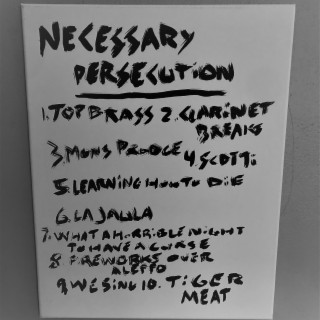 NECESSARY
PERSECUTION
1. TOP BRASS 2. CLARINET
BREAKS
3. MONS PRODGE 4. SCOTTI
5. LEARNING HOW TO DIE
6. LA JAULA
7. WHAT A HORRIBLE NIGHT
TO HAVE A CURSE
8. FIREWORKS OVER
ALEPPO
9. WE SING 10. TIGER
MEAT